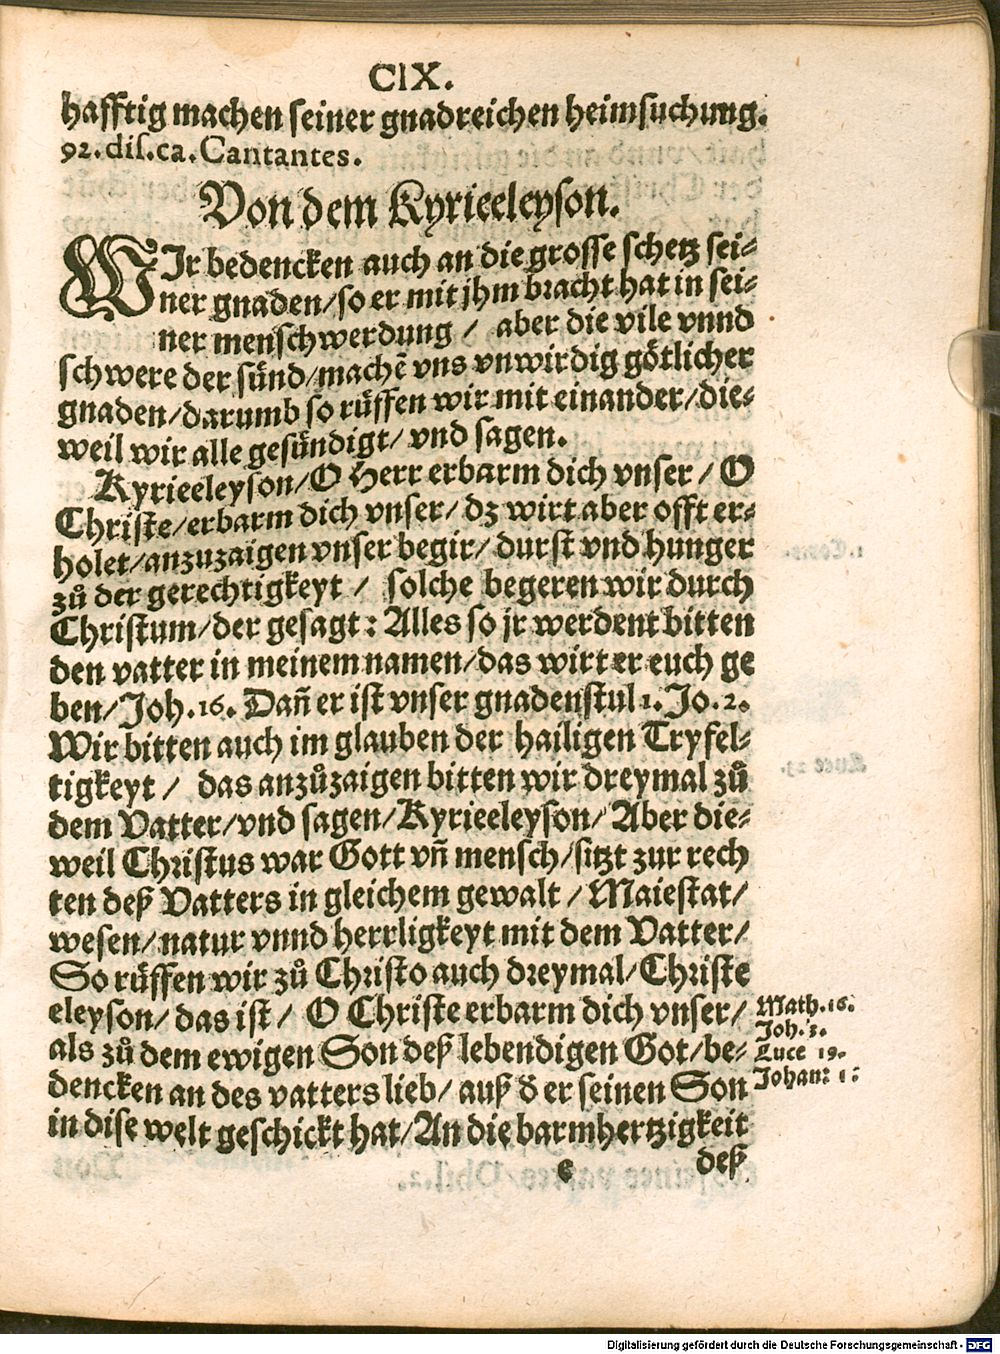 CIX.
hafftig machen seiner gnadreichen heimsuchung.
92. dis. ca. Cantantes.
Von dem Kyrieeleyson.
WIr bedencken auch an die grosse schetz sei⸗
ner gnaden/so er mit jhm bracht hat in sei⸗
ner menschwerdung / aber die vile vnnd
schwere der sünd/machẽ vns vnwirdig götlicher
gnaden/darumb so rüffen wir mit einander/die⸗
weil wir alle gesündigt/ vnd sagen.
Kyrieeleyson/O Herr erbarm dich vnser / O
Christe/erbarm dich vnser/ dz wirt aber offt er⸗
holet/anzuzaigen vnser begir/ durst vnd hunger
zů der gerechtigkeyt / solche begeren wir durch
Christum/der gesagt: Alles so jr werdent bitten
den vatter in meinem namen/das wirt er euch ge
ben/Joh.16. Dañ er ist vnser gnadenstul 1. Jo.2.
Wir bitten auch im glauben der hailigen Tryfel⸗
tigkeyt / das anzůzaigen bitten wir dreymal zů
dem Vatter/vnd sagen/Kyrieeleyson/ Aber die⸗
weil Christus war Gott vñ mensch/sitzt zur rech
ten deß Vatters in gleichem gewalt / Maiestat/
wesen/natur vnnd herrligkeyt mit dem Vatter/
So rüffen wir zů Christo auch dreymal/Christe
eleyson/ das ist / O Christe erbarm dich vnser/
als zů dem ewigen Son deß lebendigen Got/be⸗
dencken an des vatters lieb/ auß d er seinen Son
in dise welt geschickt hat/An die barmhertzigkeit
Math.16.
Joh.3.
Luce 19.
Johan: 1:
e deß
Digitalisierung gefördert durch die Deutsche Forschungsgemeinschaft - DFG